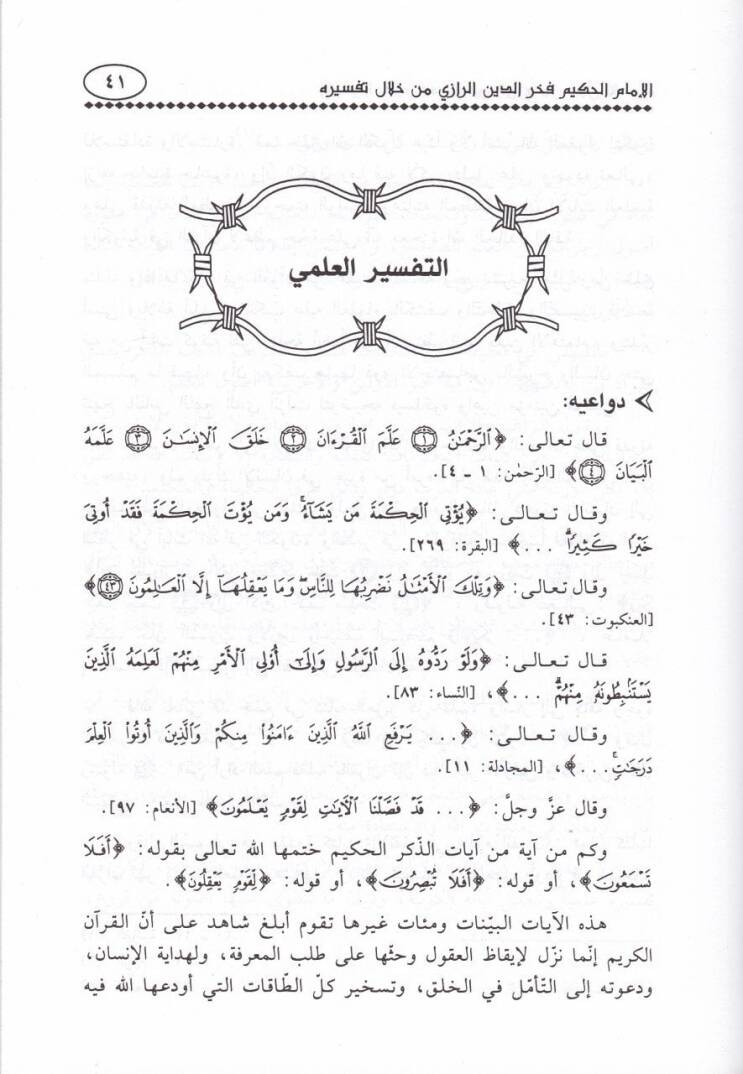 الإمام الحكيم فخر الدين الرازي من خلال تفسيره
٤١
التفسير العلمي
دواعيه:
قال تعالى: ﴿ٱلرَّحْمَٰنُ ۝١ عَلَّمَ ٱلْقُرْءَانَ ۝٢ خَلَقَ ٱلْإِنسَٰنَ ۝٣ عَلَّمَهُ
ٱلْبَيَانَ ۝٤﴾ [الرّحمٰن: ١ - ٤].
وقال تعالى: ﴿يُؤْتِى ٱلْحِكْمَةَ مَن يَشَآءُ ۚ وَمَن يُؤْتَ ٱلْحِكْمَةَ فَقَدْ أُوتِىَ
خَيْرًا كَثِيرًا ۗ ...﴾ [البقرة: ٢٦٩].
وقال تعالى: ﴿وَتِلْكَ ٱلْأَمْثَٰلُ نَضْرِبُهَا لِلنَّاسِ ۖ وَمَا يَعْقِلُهَآ إِلَّا ٱلْعَٰلِمُونَ ۝٤٣﴾
[العنكبوت: ٤٣].
قال تعالى: ﴿وَلَوْ رَدُّوهُ إِلَى ٱلرَّسُولِ وَإِلَىٰٓ أُو۟لِى ٱلْأَمْرِ مِنْهُمْ لَعَلِمَهُ ٱلَّذِينَ
يَسْتَنۢبِطُونَهُۥ مِنْهُمْ ۗ ...﴾، [النّساء: ٨٣].
وقال تعالى: ﴿... يَرْفَعِ ٱللَّهُ ٱلَّذِينَ ءَامَنُوا۟ مِنكُمْ وَٱلَّذِينَ أُوتُوا۟ ٱلْعِلْمَ
دَرَجَٰتٍ ۚ ...﴾، [المجادلة: ١١].
وقال عزّ وجلّ: ﴿... قَدْ فَصَّلْنَا ٱلْءَايَٰتِ لِقَوْمٍ يَعْلَمُونَ﴾ [الأنعام: ٩٧].
وكم من آية من آيات الذّكر الحكيم ختمها الله تعالى بقوله: ﴿أَفَلَا
تَسْمَعُونَ﴾، أو قوله: ﴿أَفَلَا تُبْصِرُونَ﴾، أو قوله: ﴿لِقَوْمٍ يَعْقِلُونَ﴾.
هذه الآيات البيّنات ومئات غيرها تقوم أبلغ شاهد على أنّ القرآن
الكريم إنّما نزّل لإيقاظ العقول وحثّها على طلب المعرفة، ولهداية الإنسان،
ودعوته إلى التّأمّل في الخلق، وتسخير كلّ الطّاقات التي أودعها الله فيه